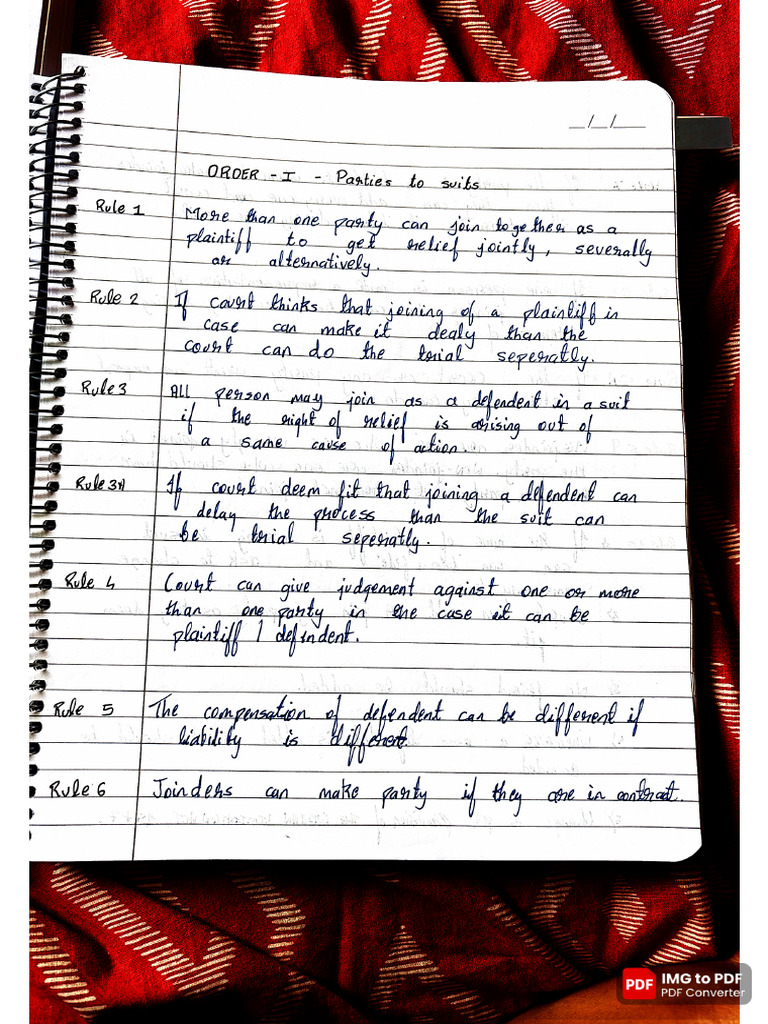 _/_/__
ORDER - I - Parties to suits
Rule 1 More than one party can join together as a
plaintiff to get relief jointly, severally
or alternatively.
Rule 2 If court thinks that joining of a plaintiff in
case can make it dealy than the
court can do the trial seperatly.
Rule 3 All person may join as a defendent in a suit
if the right of relief is arising out of
a same cause of action.
Rule 3A If court deem fit that joining a defendent can
delay the process than the suit can
be trial seperatly.
Rule 4 Court can give judgement against one or more
than one party in the case it can be
plaintiff / defendent.
Rule 5 The compensation of defendent can be different if
liability is different.
Rule 6 Joinders can make party if they are in contract.
PDF IMG to PDF
PDF Converter